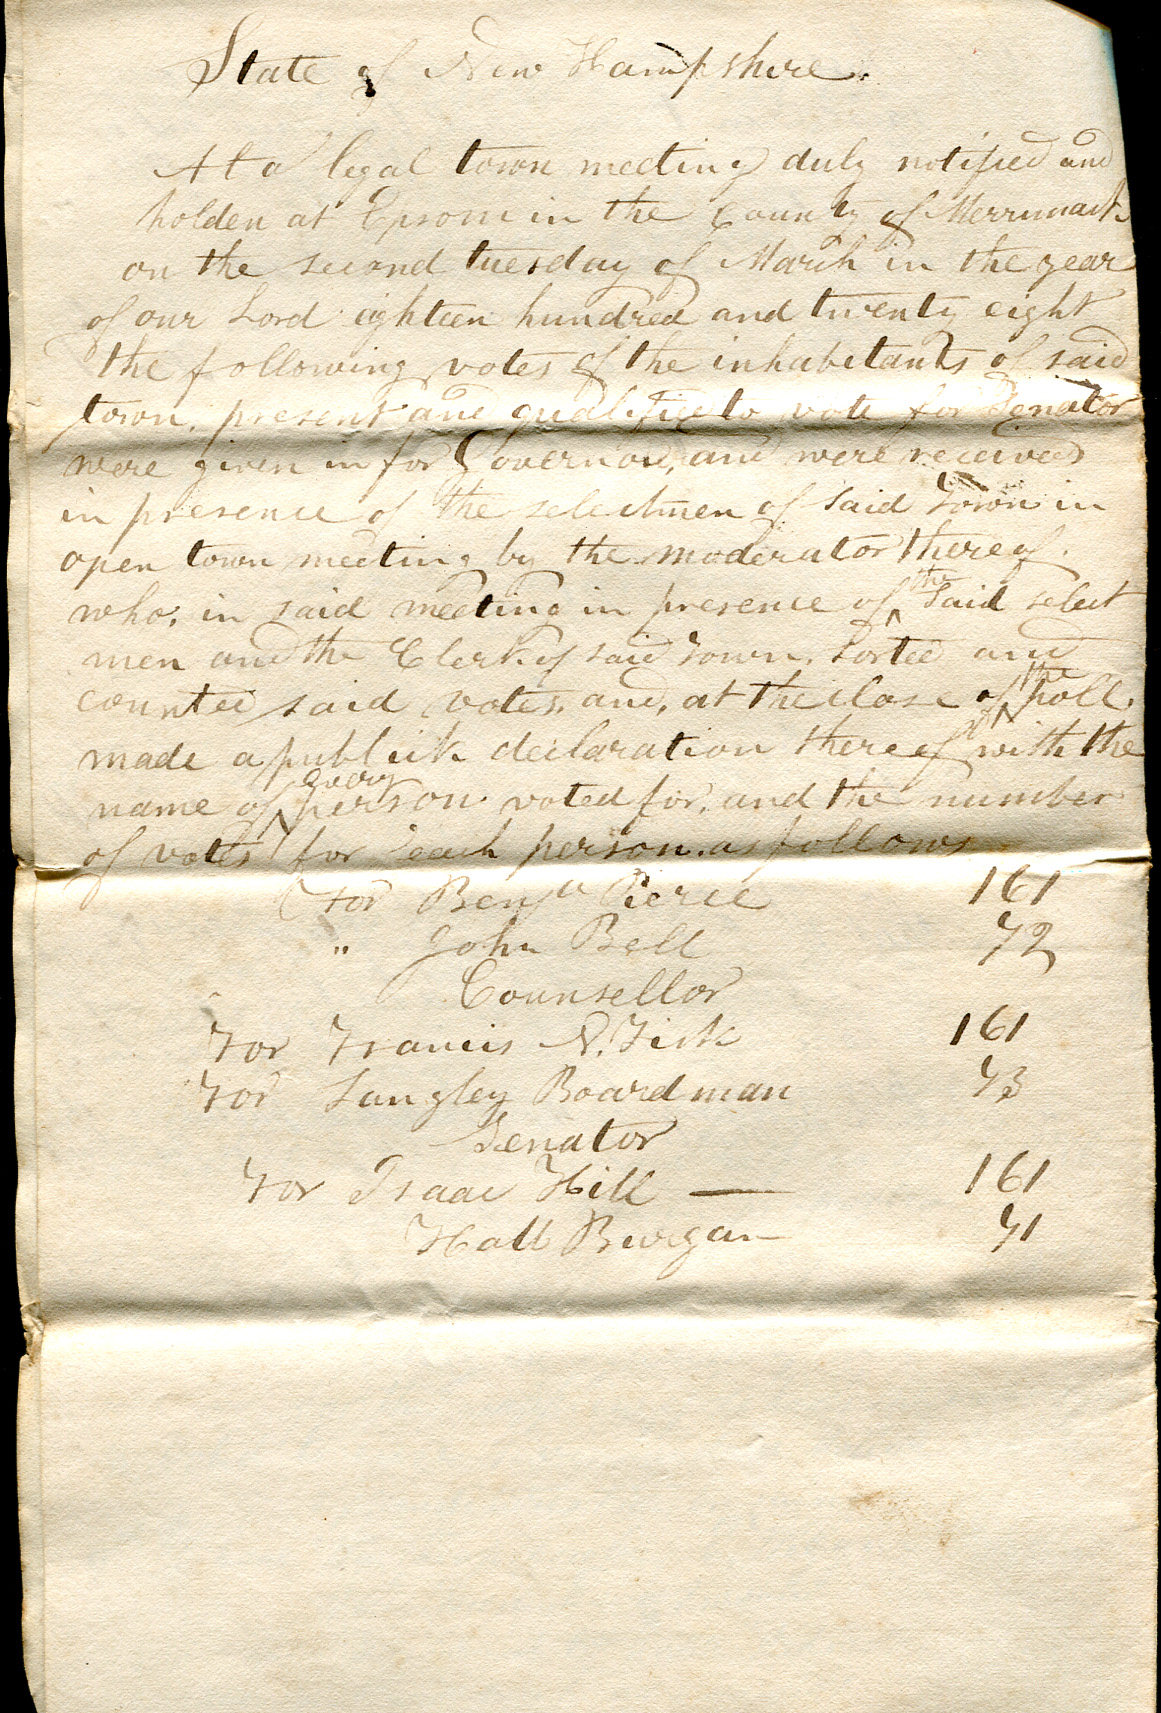 State of New Hampshire.
At a legal town meeting duly notified and
holden at Epsom in the County of Merrimack
on the second tuesday of March in the year
of our Lord eighteen hundred and twenty eight
the following votes of the inhabitants of said
town, present and qualified to vote for Senator
were given in for Governor, and were received
in presence of the selectmen of said Town in
open town meeting by the moderator thereof.
who, in said meeting in presence of the said select
men and the Clerk of said Town, Sorted and
counted said votes, and, at the close of the poll,
made a publick declaration thereof with the
name of every person voted for, and the number
of votes for each person. as follows
For Benja Pierce 161
" John Bell 72
Counsellor
For Francis N. Fisk 161
For Langley Boardman 73
Senator
For Isaac Hill — 161
Hall Burgan 71